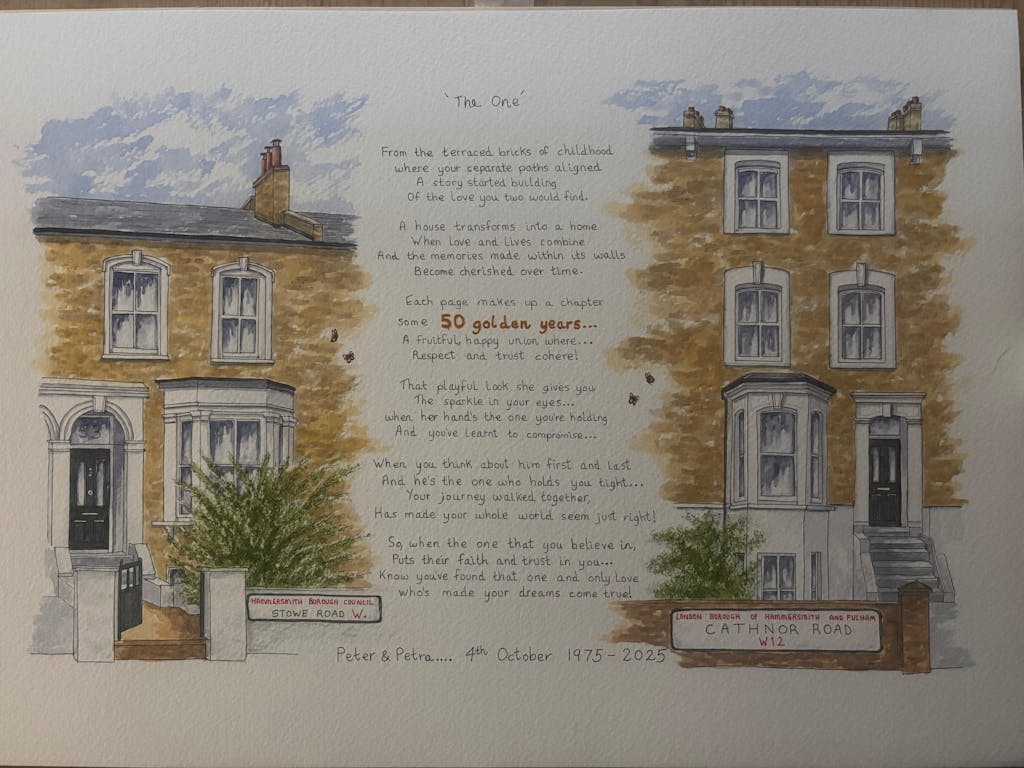 'The One'
From the terraced bricks of childhood
where your separate paths aligned
A story started building
Of the love you two would find.
A house transforms into a home
When love and lives combine
And the memories made within its walls
Become cherished over time.
Each page makes up a chapter
some 50 golden years...
A fruitful, happy union where...
Respect and trust cohere!
That playful look she gives you
The sparkle in your eyes...
when her hand's the one you're holding
And you've learnt to compromise...
When you think about him first and last
And he's the one who holds you tight...
Your journey walked together,
Has made your whole world seem just right!
So, when the one that you believe in,
Puts their faith and trust in you...
Know you've found that one and only love
who's made your dreams come true!
HAMMERSMITH BOROUGH COUNCIL
STOWE ROAD W.
LONDON BOROUGH OF HAMMERSMITH AND FULHAM
CATHNOR ROAD
W12
Peter & Petra.... 4th October 1975-2025